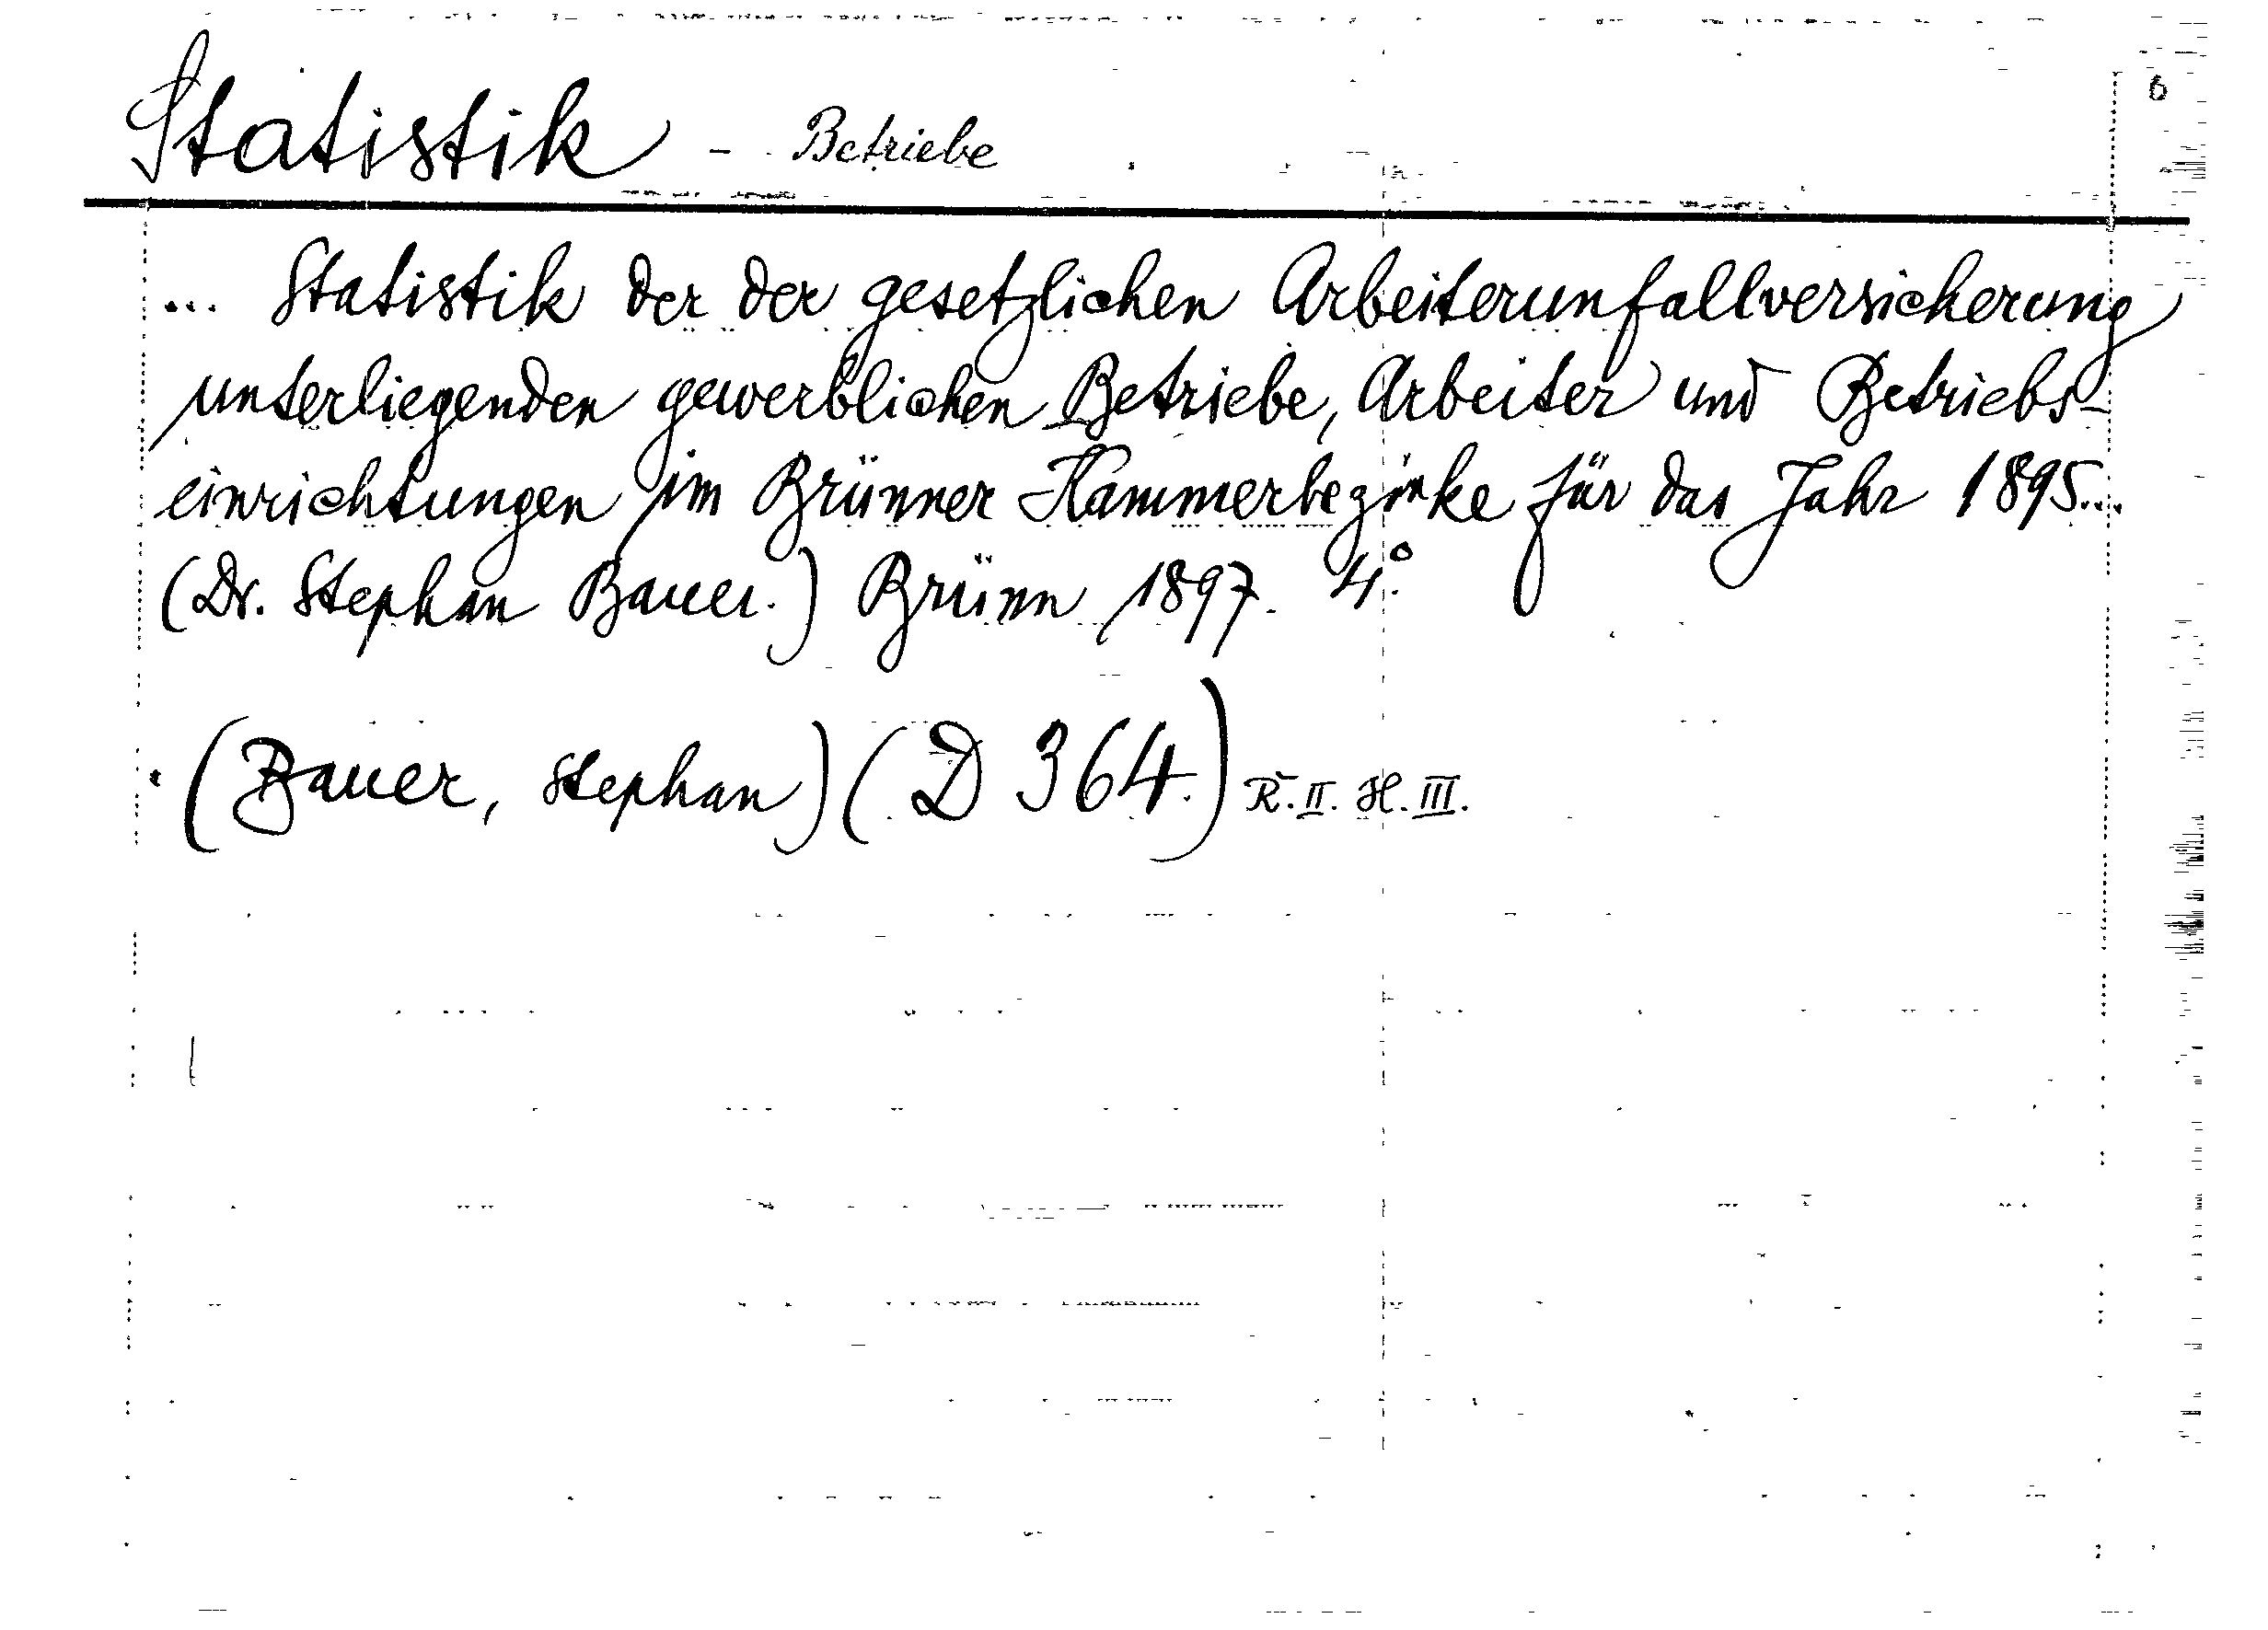 Statistik - Betriebe
6
... Statistik der der gesetzlichen Arbeiterunfallversicherung
unterliegenden gewerblichen Betriebe, Arbeiter und Betriebs-
einrichtungen im Brünner Kammerbezirke für das Jahr 1895...
(Dr. Stephan Bauer.) Brünn 1897. 4°.
(Bauer, Stephan) (D 364.) R. II. H. III.